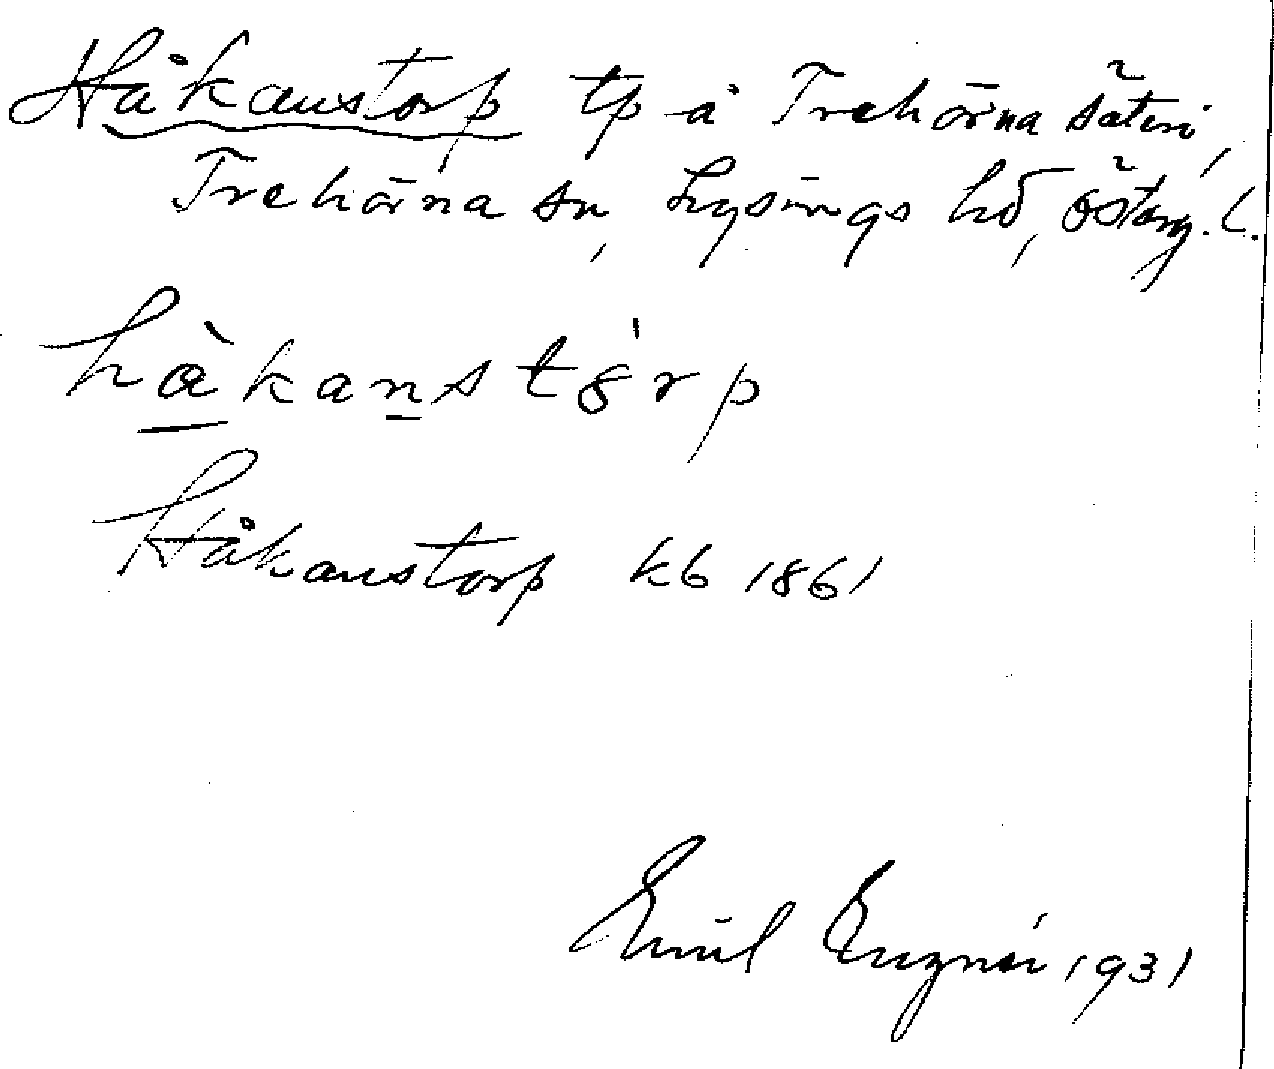 Håkanstorp tp å Trehörna säteri,
Trehörna sn, Lysings hd, Österg. l.
hàkanstórp
Håkanstorp kb 1861
Emil 1931